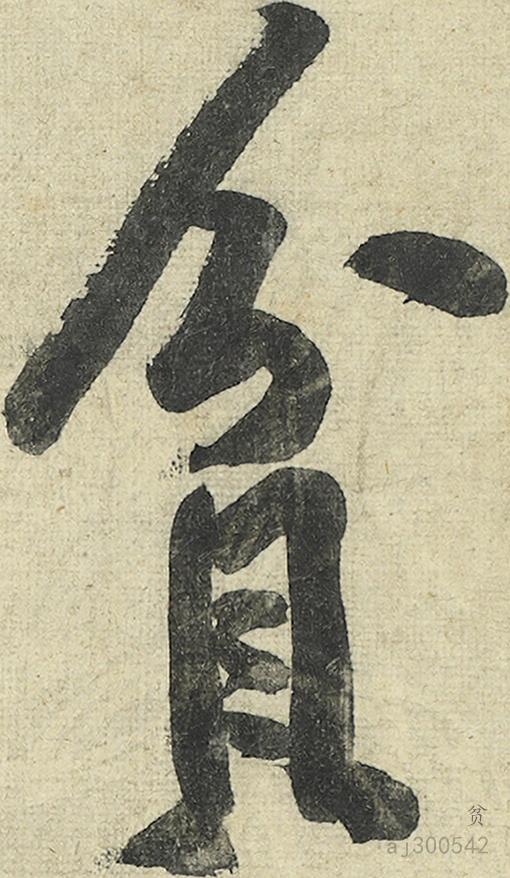 貧
贫
aj300542